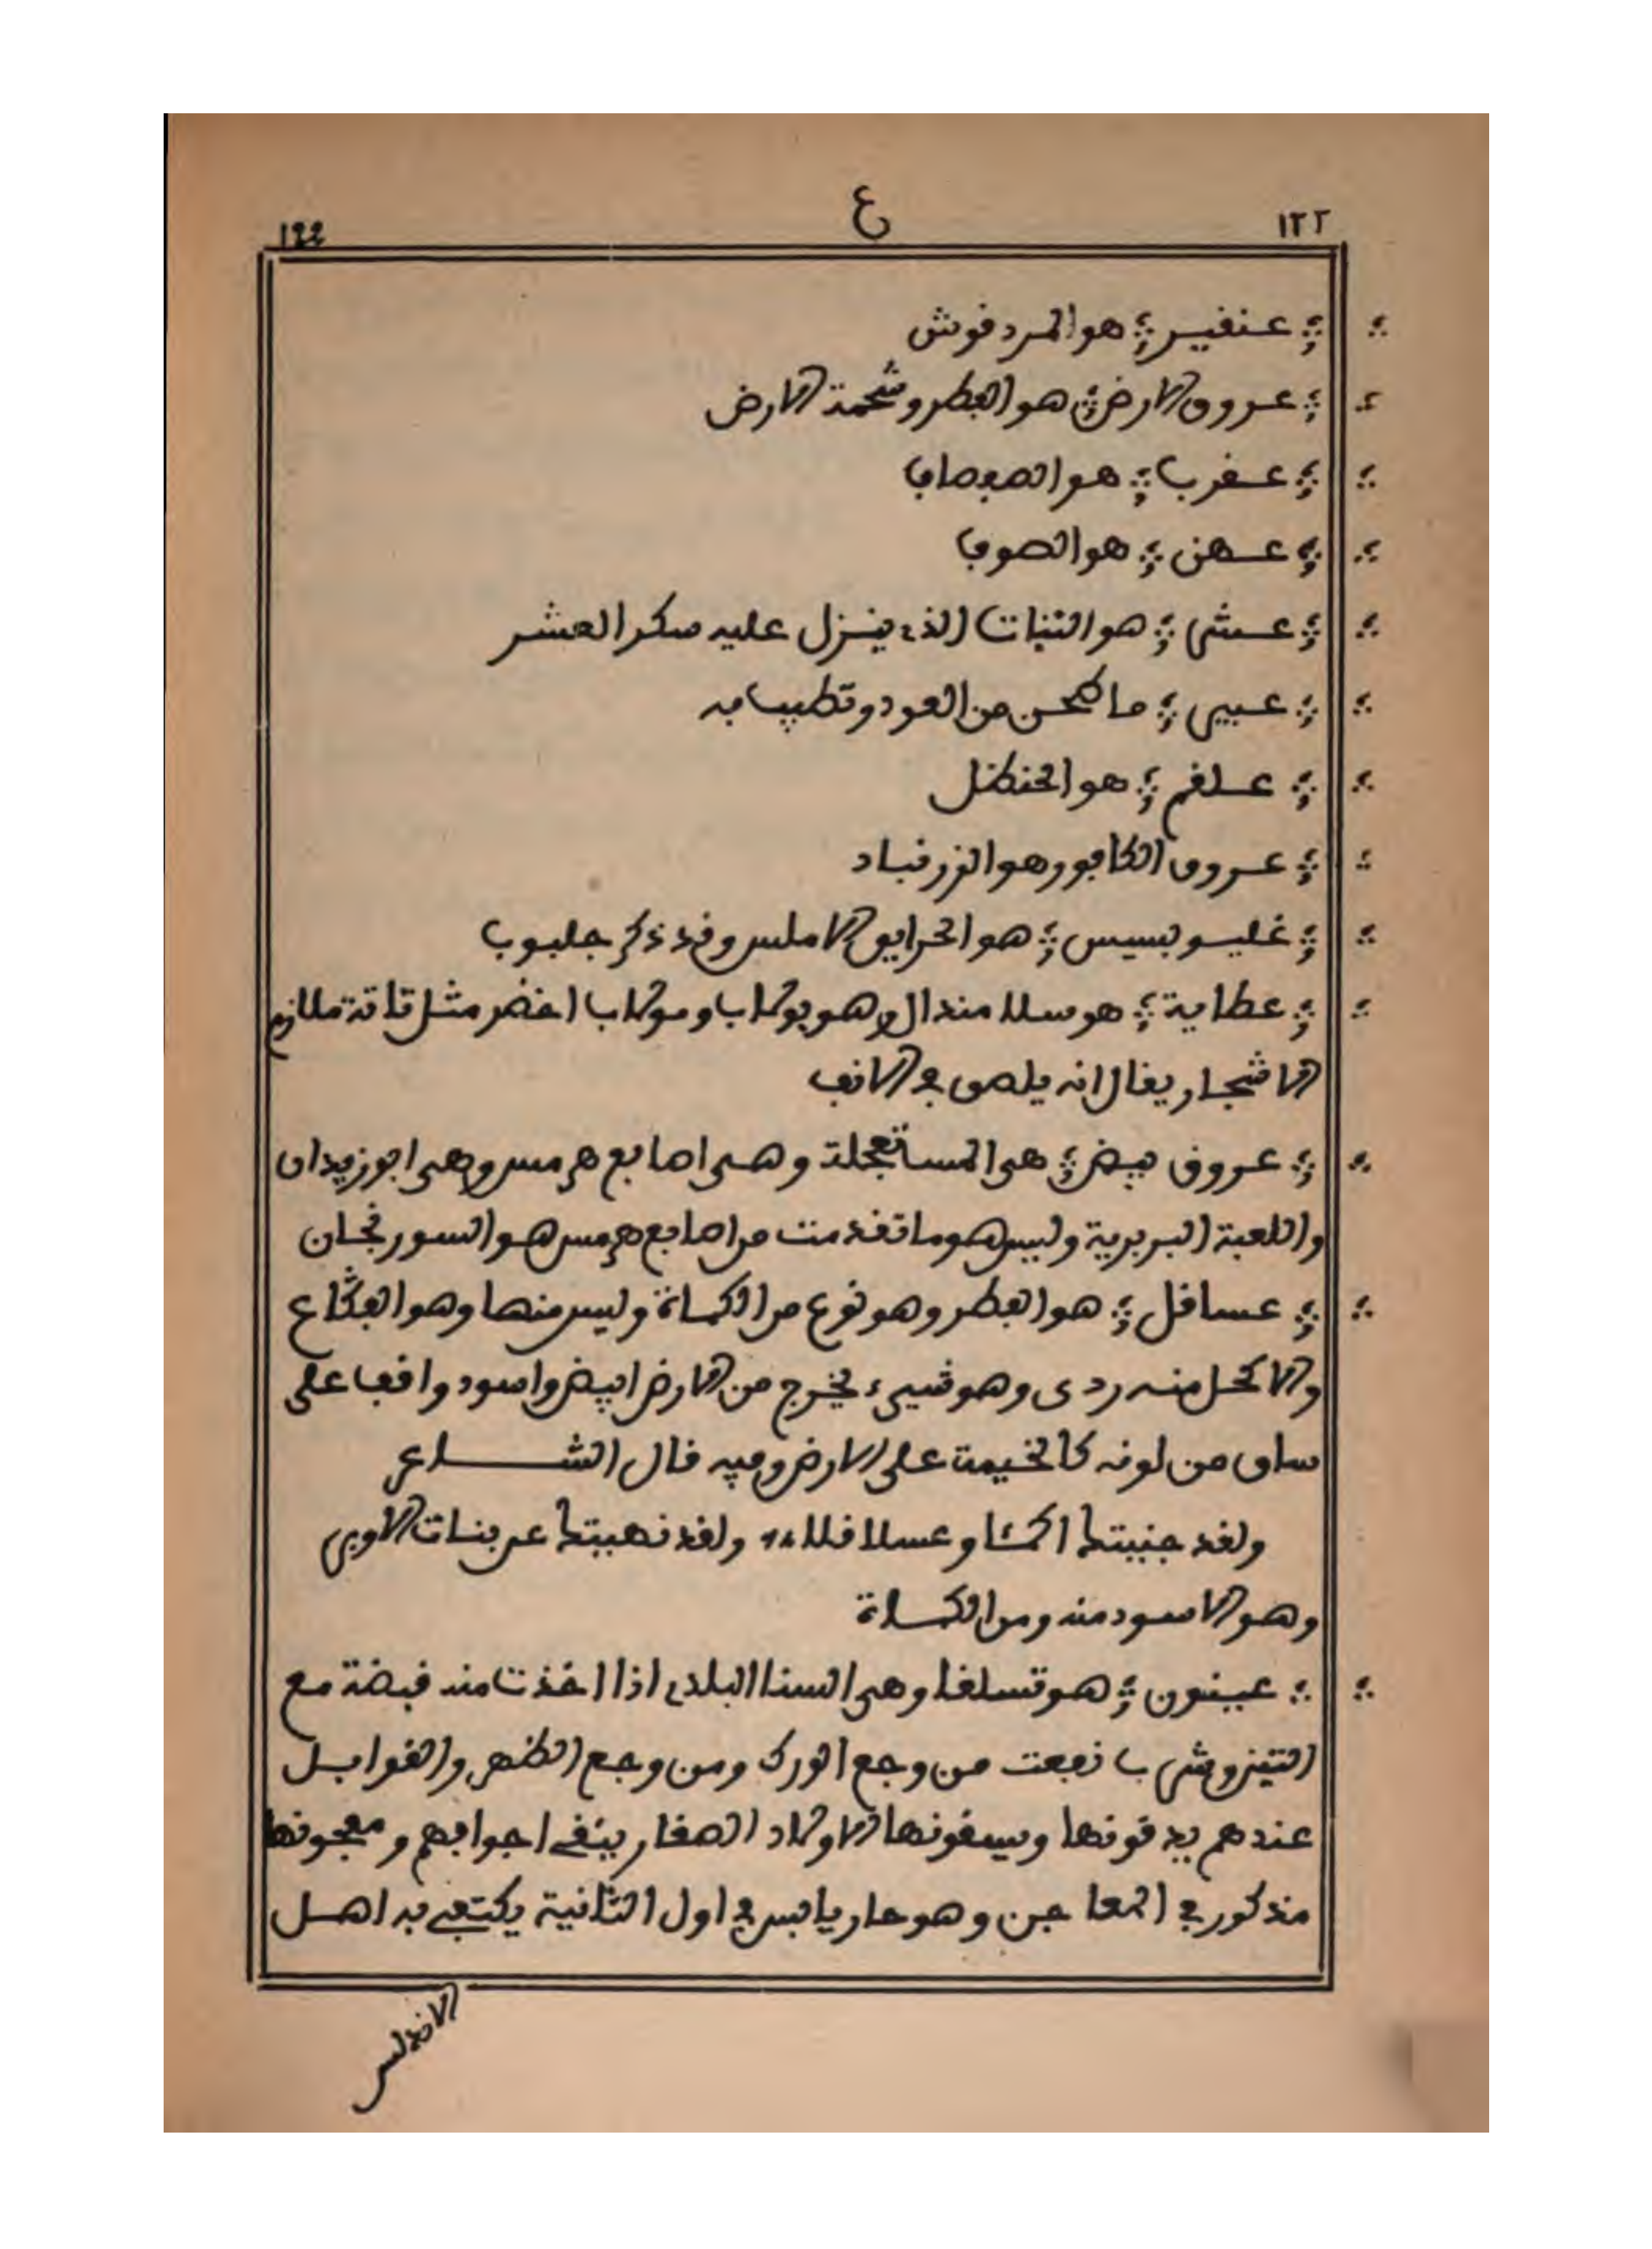 ١٢٢ ع ١٢٢
عنقير هو المردقوش
عروق الارض هو الفطر وشحمة الارض
عقرب هو الصفصاف
عهن هو الصوف
عشى هو النبات الذى ينزل عليه سكر العشر
عبيى ما طحن من العود وتطيب به
علقم هو الحنظل
عروق الكافور هو الزرنباد
غليسوبسيس هو الخرايق الاملس وقد ذكر جلبوب
عطاية هو سلا مندال وهو بوكاب وموكاب اخضر مثل تاتة ملازم
الاشجار يقال انه يلصق في الانف
عروق بيض هى المستعجلة وهى اصابع هرمس وهى ابوزيدان
واللعبة البربرية وليس هو ما تقدمت من اصابع هرمس هو السورنجان
عساقل هو الفطر وهو نوع من الكماة وليس منها وهو الفكاع
والاكحل منه ردى وهو شيىء يخرج من الارض ابيض واسود واقف على
ساق من لونه كالخيمة على الارض وفيه قال الشاعر
ولقد جنيتك اكمئا وعساقلا ولقد نهيتك عن بنات الاوبى
وهو الاسود منه ومن الكماة
عينون هو تسلغا وهى السنا البلدى اذا اخذت منه قبضة مع
التين وشرب نفعت من وجع الورك ومن وجع الظهر والقوابل
عندهم يدقونها ويسقونها الاولاد الصغار ينقى اجوافهم ومعجونها
مذكور في المعاجن وهو حار يابس في اول الثانية يكتفى به اهل
الاندلس